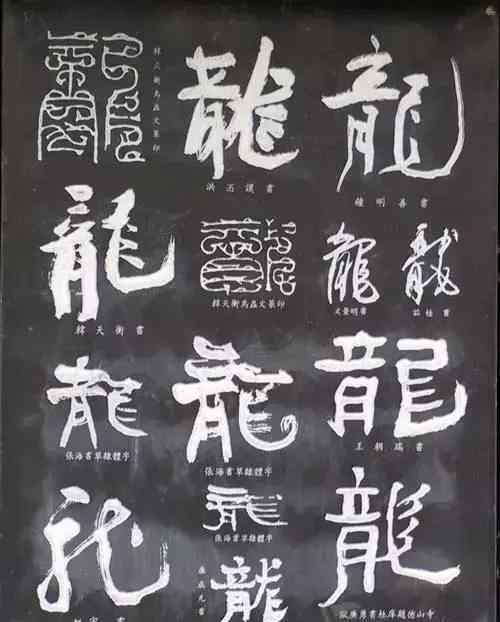 韓天衡鳥蟲文篆印
龍
洪丕謨書
龍
鐘明善書
龍
韓天衡書
韓天衡鳥蟲文篆印
龍
文徵明書
龍
茹桂書
龍
張海書草隸體字
龍
張海書草隸體字
龍
王朝瑞書
龍
龍
張海書草隸體字
龍
龍